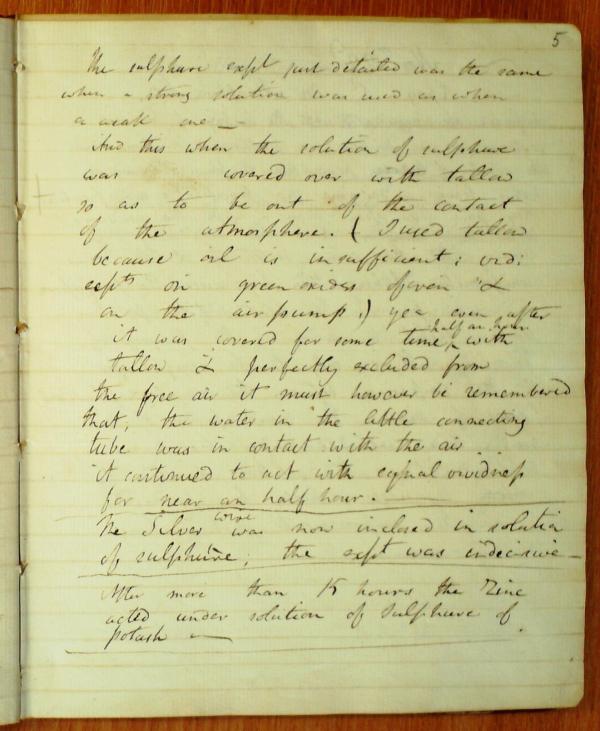 5
The sulphure expt just detailed was the same
when a strong solution was used as when
a weak one —
And this when the solution of sulphure
was covered over with tallow
so as to be out of the contact
of the atmosphere. ( I used tallow
because oil is insufficient; vid:
expts on green oxides of iron &
on the air pump.) yea even after
half an hour
it was covered for some time ^ with
tallow & perfectly excluded from
the free air it must however be remembered
that, the water in the little connecting
tube was in contact with the air . .
it continued to act with equal vividness
for near an half hour. —
wire
The Silver was now inclosed in solution
of sulphure; the expt was indecisive —
After more than 15 hours the Zinc
acted under solution of Sulphure of
potash —